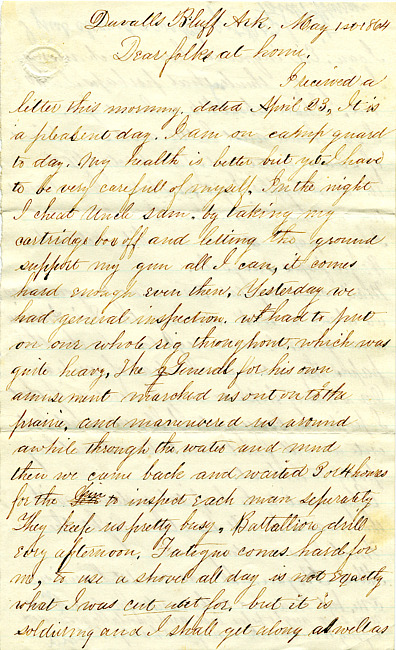 Duvalls Bluff Ark. May 1st 1864
Dear folks at home.
I recieved a
letter this morning dated April 23, It is
a pleasent day. I am on camp guard
to day. My health is better but yet I have
to be very carefull of myself. In the night
I cheat Uncle Sam. by taking my
cartridge box off and letting the ground
support my gun all I can, it comes
hard enough even then. Yesterday we
had general inspection. we had to put
on our whole rig throughout, which was
quite heavy, The General for his own
amusement marched us out onto the
prairie, and maneuvered us around
awhile through the water and mud
then we came back and waited 3 or 4 hours
for the to inspect each man seperately
They keep us pretty busy, Battallion drill
evry afternoon. Fatogue comes hard for
me, to use a shovel all day is not exactly
what I was cut out for, but it is
soldiering and I shall get along as well as